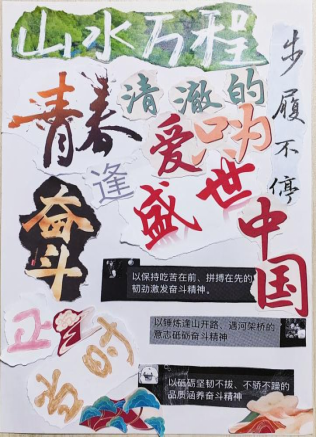 山水万程
步履不停
青春
清澈的
爱
呐
逢
盛世
中国
奋斗
以保持吃苦在前、拼搏在先的
韧劲激发奋斗精神
以锤炼逢山开路、遇河架桥的
意志砥砺奋斗精神
正
青
春
以砥砺坚韧不拔、不骄不躁的
品质涵养奋斗精神